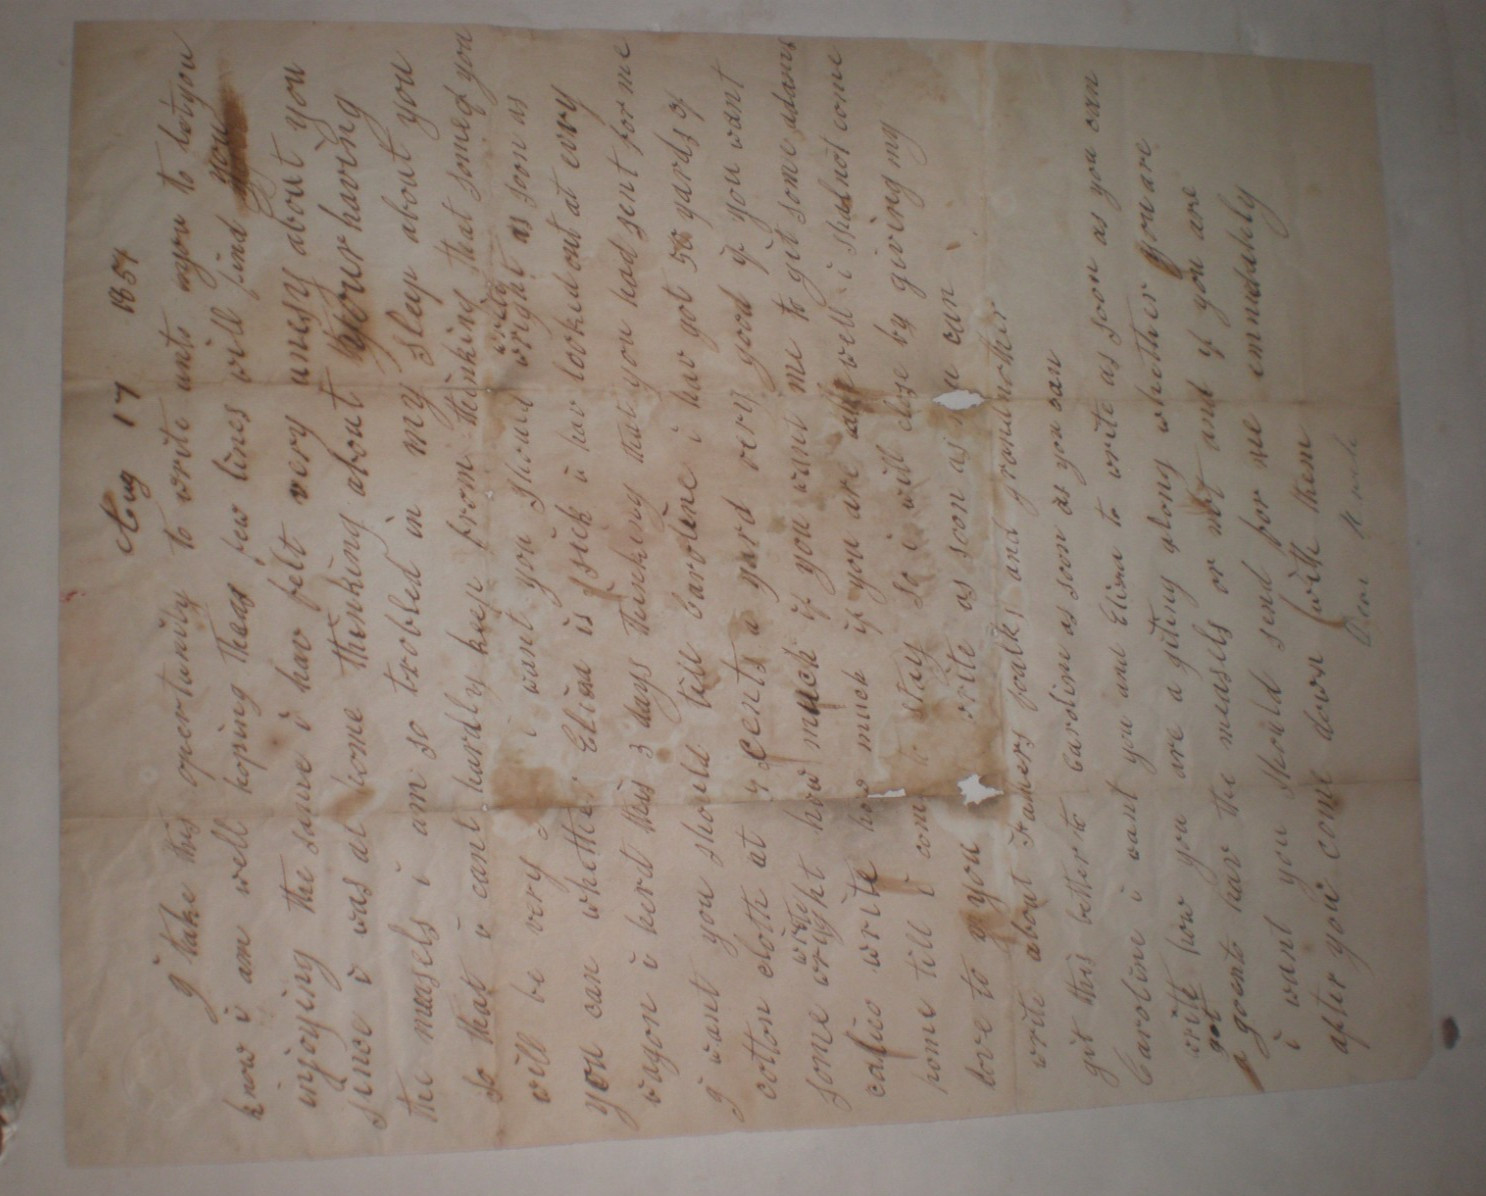 Aug 17 1854
I take this opertunity to write unto you to let you
know i am well hoping theas few lines will find you
injoying the same i hav felt very unesy about you
since i was at home thinking about your having
the measels i am so trobbled in my sleep about you
so that i cant hardly keep from thinking that some of you
will be very i want you should write wright as soon as
you can whether Elisa is sick i hav looked out at evry
wagon i herd this 3 days thinking that you had sent for me
I want you should tell Caroline i hav got 50 yards of
cotton cloth at 4 cents a yard very good if you want
some write wright how much if you want me to git some
calico write how much if you are all well i shal not come
home till i com stay so i will close by giving my
love to you write as soon as can
write about Fathers folks and grandmother
git this letter to Caroline as soon as you can
Caroline i want you and Elisa to write as soon as you can
write how you are a giting along whether you are
got a goente hav the measels or not and if you are
i want you should send for me immediately
after you come down with them